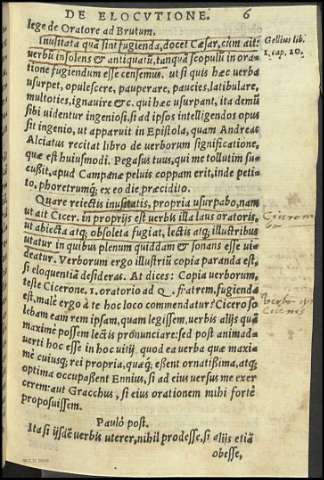 DE ELOCVTIONE. 6
lege de Oratore ad Brutum.
Inusitata quā sint fugienda, docet Cæsar, cùm ait:
verbū insolens & antiquatū, tanquā scopulū in ora-
tione fugiendum esse censemus. ut si quis hæc verba
usurpet, opulescere, pauperare, paucies, latibulare,
multoties, ignauire &c. qui hæc usurpant, ita demū
sibi uidentur ingeniosi, si ad ipsos intelligendos opus
sit ingenio, ut apparuit in Epistola, quam Andreas
Alciatus recitat libro de verborum significatione,
quæ est huiusmodi. Pegasus tuus, qui me tollutim suc-
cußit, apud Campanæ peluis coppam erit, inde peti-
to, phoretrumq; ex eo die præcidito.
Gellius lib.
1. cap. 10.
Quare reiectis inusitatis, propria usurpabo, nam
ut ait Cicer. in proprijs est verbis illa laus oratoris,
ut abiecta atq; obsoleta fugiat, lectis atq; illustribus
utatur in quibus plenum quiddam & sonans esse ui-
deatur. Verborum ergo illustriū copia paranda est,
si eloquentiā desideras. At dices: Copia verborum,
teste Cicerone. 1. oratorio ad Q. fratrem, fugienda
est, malè ergo à te hoc loco commendatur? Cicero so
lebam eam rem ipsam, quam legissem. verbis alijs quā
maximè possem lectis pronunciare: sed post animad-
uerti hoc esse in hoc uitij. quod ea verba quæ maxi-
mè cuiusq; rei propria, quæq; essent ornatißima, atq;
optima occupaßent Ennius, si ad eius versus me exer
cerem: aut Gracchus, si eius orationem mihi fortè
proposuissem.
Paulò post.
Ita si ijsdē verbis uterer, nihil prodesse, si alijs etiā
obesse,